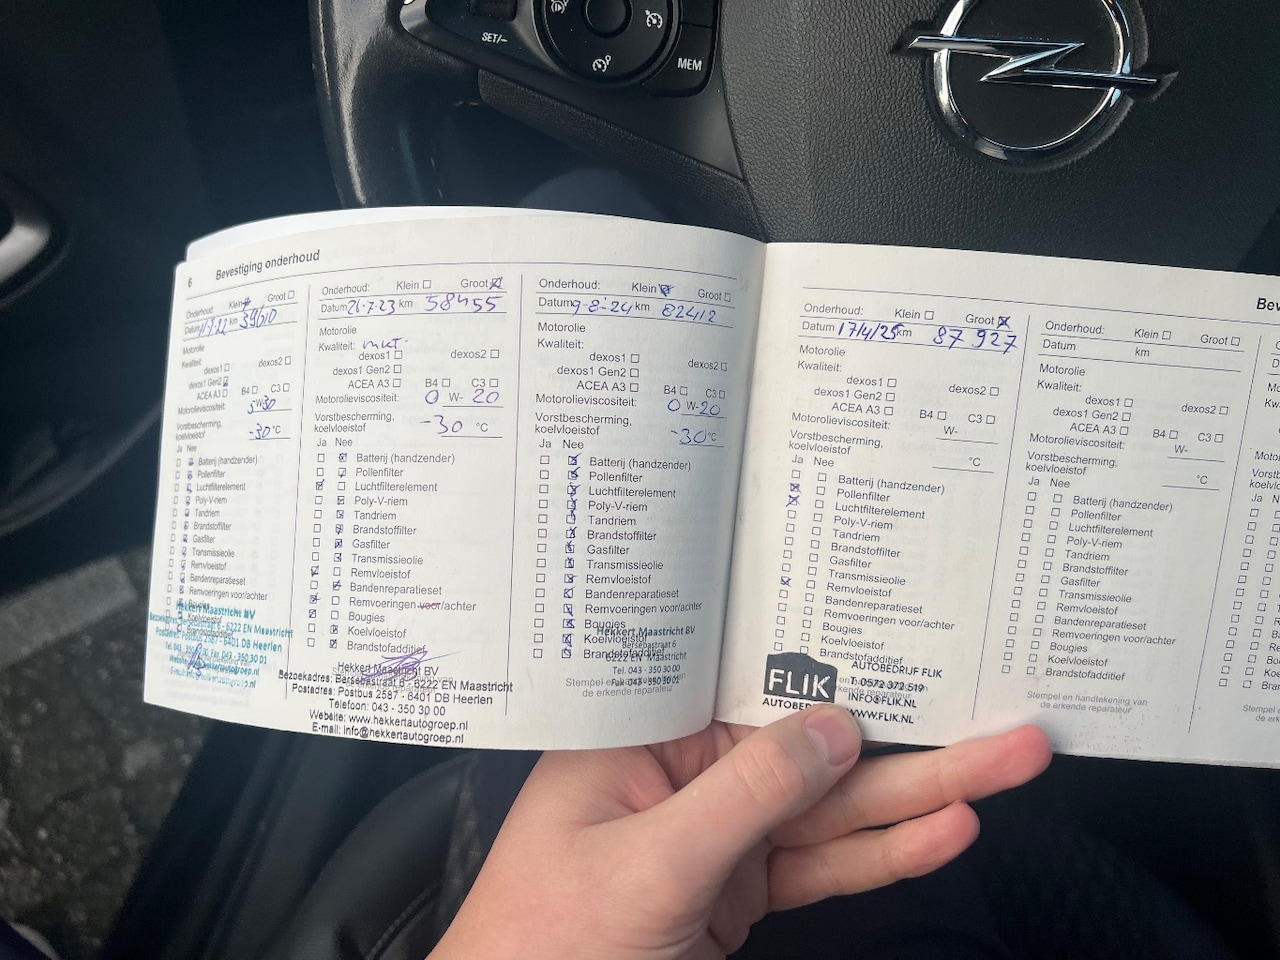 SET/-
MEM
6 Bevestiging onderhoud
Onderhoud: Klein Groot
Datum km
Motorolie
Kwaliteit:
dexos1 dexos2
dexos1 Gen2
ACEA A3 B4 C3
Motorolieviscositeit: 5 W- 30
Vorstbescherming,
koelvloeistof -30 °C
Ja Nee
Batterij (handzender)
Pollenfilter
Luchtfilterelement
Poly-V-riem
Tandriem
Brandstoffilter
Gasfilter
Transmissieolie
Remvloeistof
Bandenreparatieset
Remvoeringen voor/achter
Bougies
Koelvloeistof
Brandstofadditief
Hekkert Maastricht BV
6222 EN Maastricht
6401 DB Heerlen
Onderhoud: Klein Groot
Datum 26-7-23 km 58455
Motorolie
Kwaliteit:
dexos1 dexos2
dexos1 Gen2
ACEA A3 B4 C3
Motorolieviscositeit: 0 W- 20
Vorstbescherming,
koelvloeistof -30 °C
Ja Nee
Batterij (handzender)
Pollenfilter
Luchtfilterelement
Poly-V-riem
Tandriem
Brandstoffilter
Gasfilter
Transmissieolie
Remvloeistof
Bandenreparatieset
Remvoeringen voor/achter
Bougies
Koelvloeistof
Brandstofadditief
Hekkert Maastricht BV
Bezoekadres: Bersebastraat 6 - 6222 EN Maastricht
Postadres: Postbus 2587 - 6401 DB Heerlen
Telefoon: 043 - 350 30 00
Website: www.hekkertautogroep.nl
E-mail: info@hekkertautogroep.nl
Onderhoud: Klein Groot
Datum 9-8-24 km 82412
Motorolie
Kwaliteit:
dexos1 dexos2
dexos1 Gen2
ACEA A3 B4 C3
Motorolieviscositeit: 0 W-20
Vorstbescherming,
koelvloeistof -30 °C
Ja Nee
Batterij (handzender)
Pollenfilter
Luchtfilterelement
Poly-V-riem
Tandriem
Brandstoffilter
Gasfilter
Transmissieolie
Remvloeistof
Bandenreparatieset
Remvoeringen voor/achter
Bougies
Koelvloeistof
Brandstofadditief
Hekkert Maastricht BV
Bersebastraat 6
6222 EN Maastricht
Tel. 043 - 350 30 00
Fax 043 - 350 30 01
Stempel en
de erkende reparateur
Onderhoud: Klein Groot
Datum 17/4/25 km 87 927
Motorolie
Kwaliteit:
dexos1 dexos2
dexos1 Gen2
ACEA A3 B4 C3
Motorolieviscositeit: W-
Vorstbescherming,
koelvloeistof °C
Ja Nee
Batterij (handzender)
Pollenfilter
Luchtfilterelement
Poly-V-riem
Tandriem
Brandstoffilter
Gasfilter
Transmissieolie
Remvloeistof
Bandenreparatieset
Remvoeringen voor/achter
Bougies
Koelvloeistof
Brandstofadditief
FLIK
AUTOBEDRIJF FLIK
T: 0572 372 519
INFO@FLIK.NL
WWW.FLIK.NL
Bev
Onderhoud: Klein Groot
Datum km
Motorolie
Kwaliteit:
dexos1 dexos2
dexos1 Gen2
ACEA A3 B4 C3
Motorolieviscositeit: W-
Vorstbescherming,
koelvloeistof °C
Ja Nee
Batterij (handzender)
Pollenfilter
Luchtfilterelement
Poly-V-riem
Tandriem
Brandstoffilter
Gasfilter
Transmissieolie
Remvloeistof
Bandenreparatieset
Remvoeringen voor/achter
Bougies
Koelvloeistof
Brandstofadditief
Stempel en handtekening van
de erkende reparateur